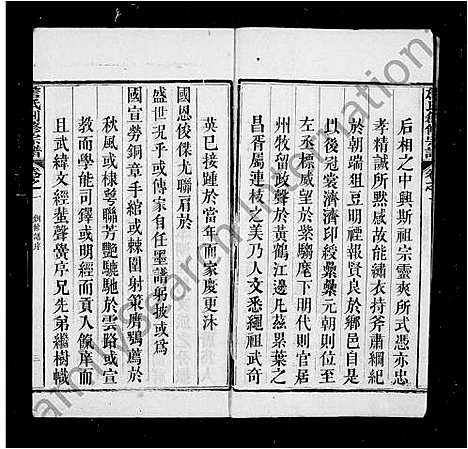 后相之中興斯祖宗靈爽所式憑亦忠
孝精誠所黙感故能繡衣持斧肅綱紀
於朝端狙豆明裡報賢良於鄉邑自是
以後冠裳濟濟印綬纍纍元朝則位至
左丞標威望於紫騮麾下明代則官居
州牧留政聲於黃鶴江邊凡茲累葉之
昌胥屬連枝之美乃人文悉繩祖武奇
英已接踵於當年而家慶更沐
國恩俊傑尤聯肩於
盛世況乎或傳家自任墨譜躬披或爲
國宣勞銅章手綰或棘圍射策膺鶚薦於
秋風或棣萼聯芳艷驪馳於雲路或宣
教而學能司鐸或明經而貢入
且武緯文經蜚聲黌序兄先弟繼樹幟
詹氏創修宗譜
卷之一
創修譜序
二
familySearch International